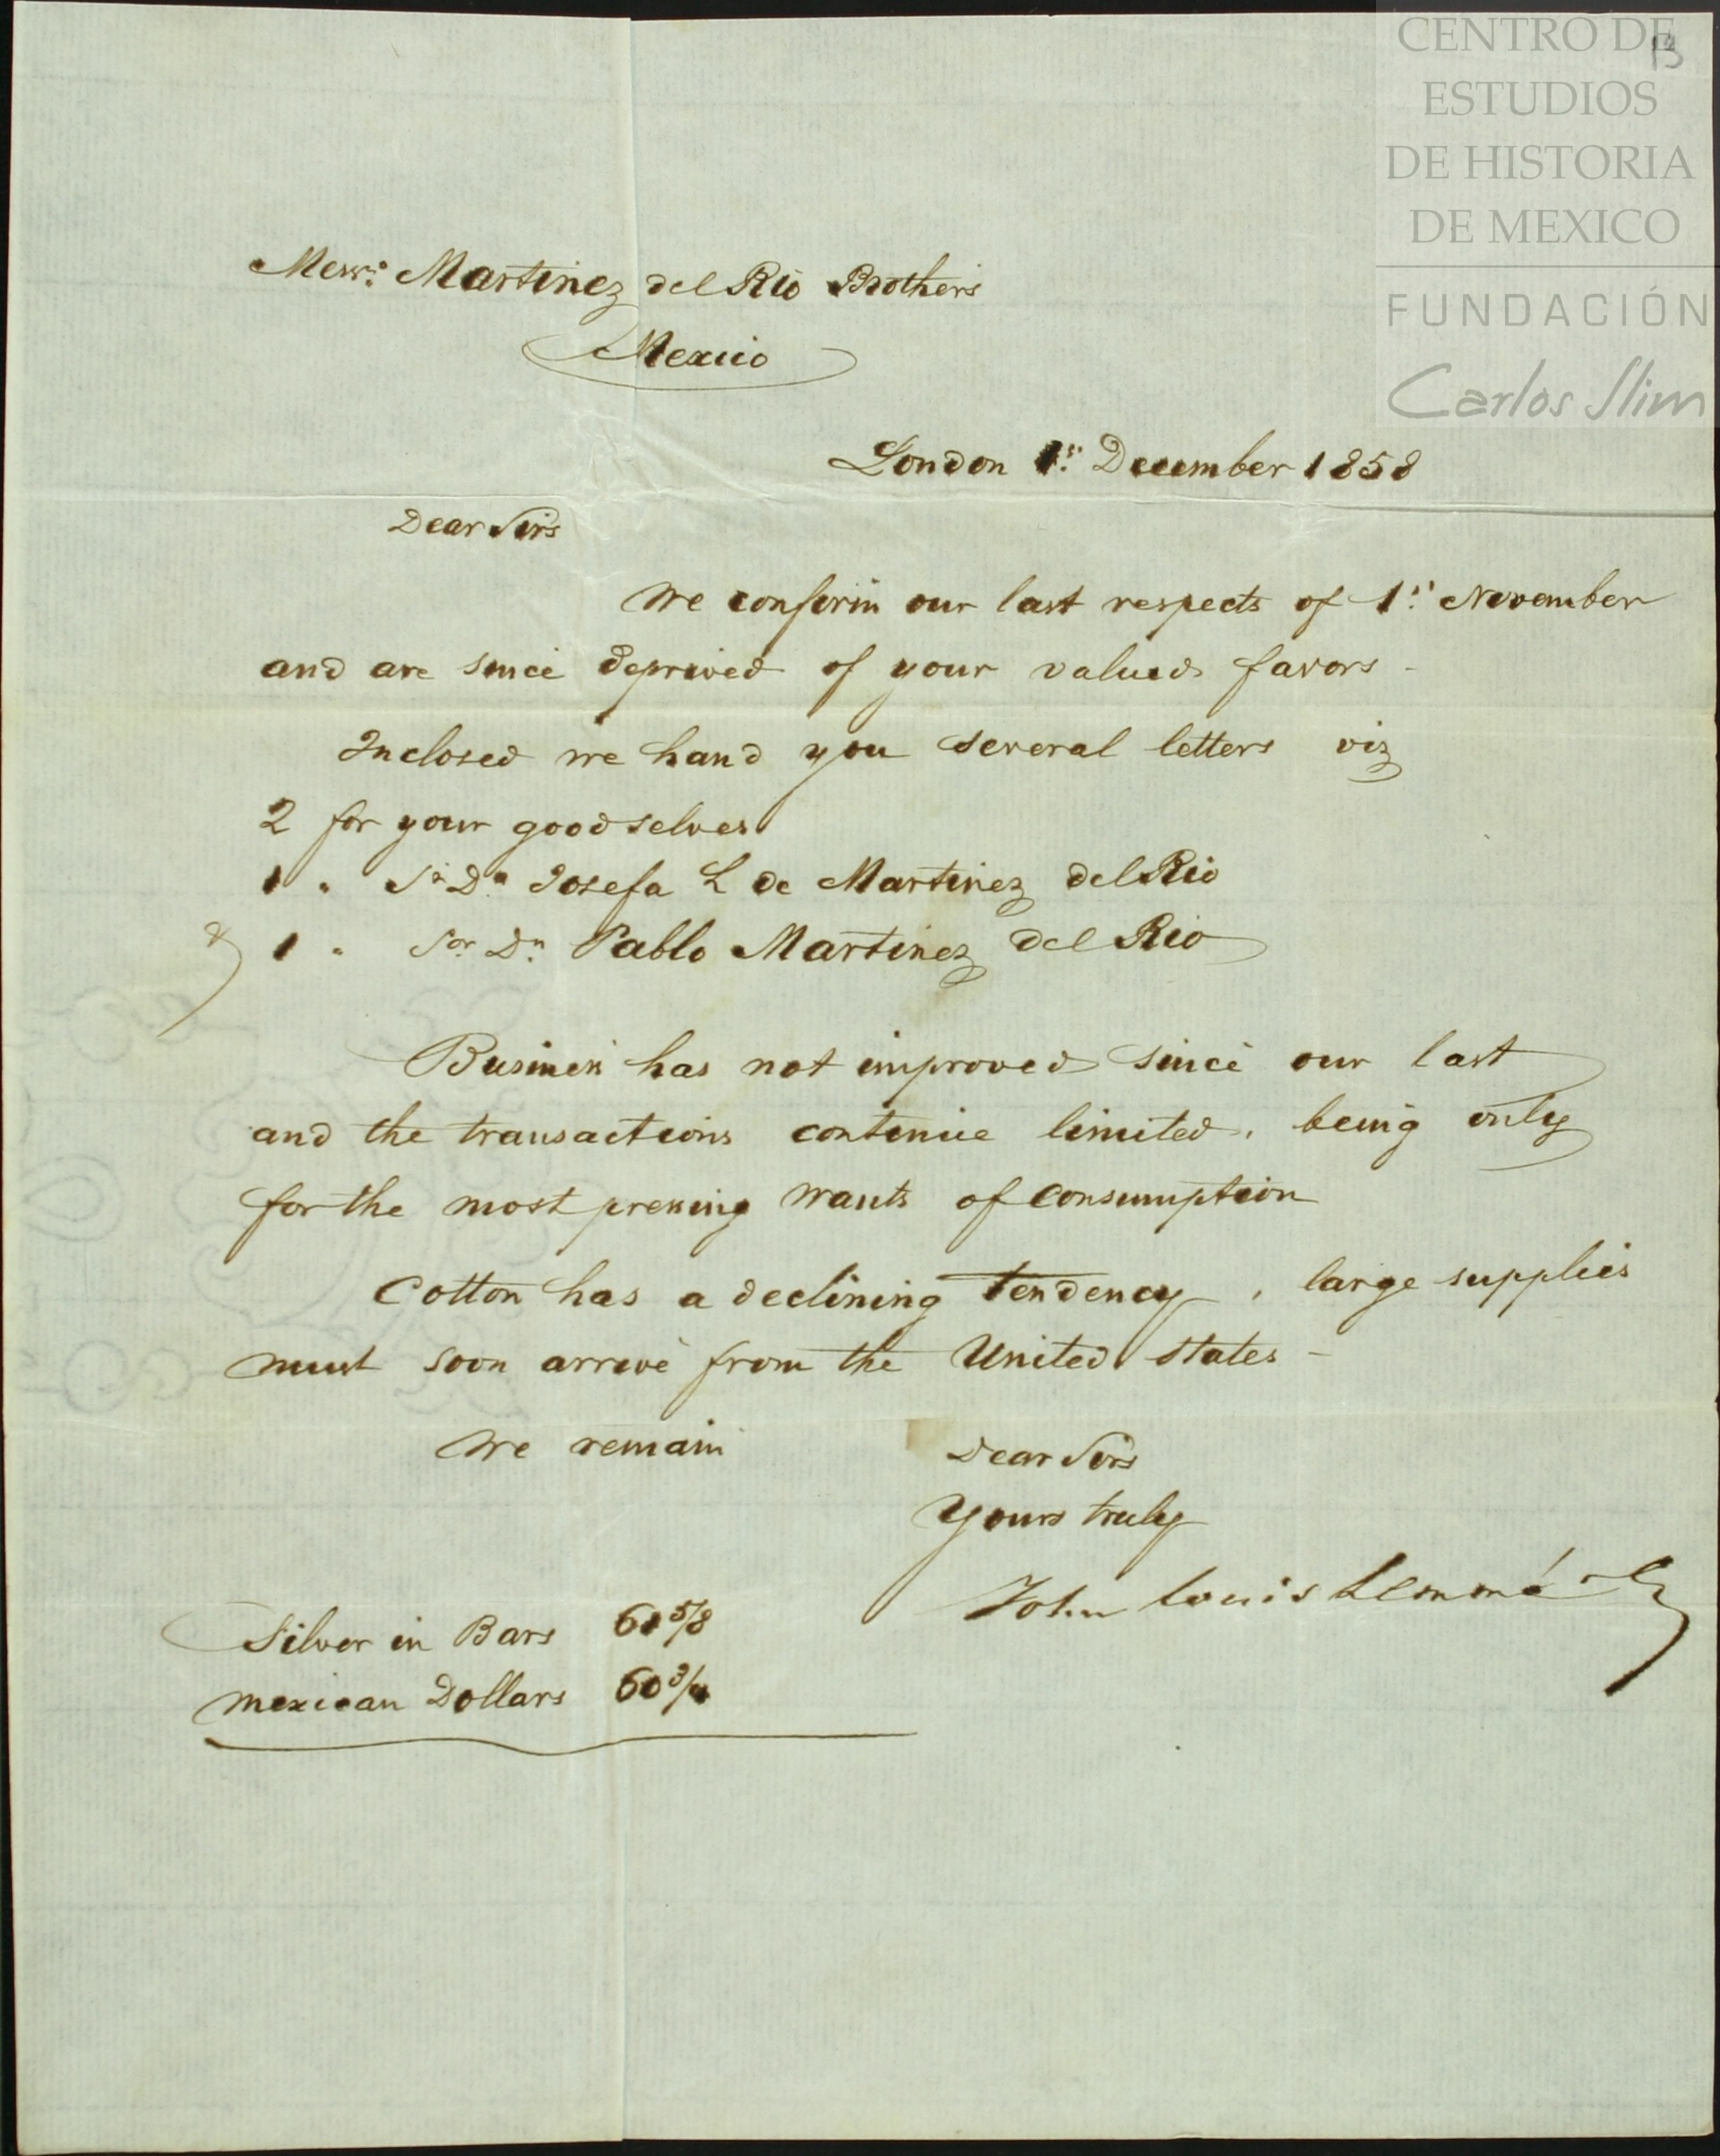 CENTRO DE
ESTUDIOS
DE HISTORIA
DE MEXICO
FUNDACIÓN
Carlos Slim
13
Messrs. Martinez del Rio Brothers
Mexico
London 1st. December 1858
Dear Sirs
We confirm our last respects of 1st. November
and are since deprived of your valued favors -
Inclosed we hand you several letters viz
2 for your good selves
1 " Sa. Da. Josefa L de Martinez del Rio
& 1 " Sor. Dn. Pablo Martinez del Rio
Business has not improved since our last
and the transactions continue limited, being only
for the most pressing wants of consumption
Cotton has a declining tendency, large supplies
must soon arrive from the United States -
We remain
Dear Sirs
Yours truly
John Louis Lemmé
Silver in Bars 61 5/8
Mexican Dollars 60 3/4